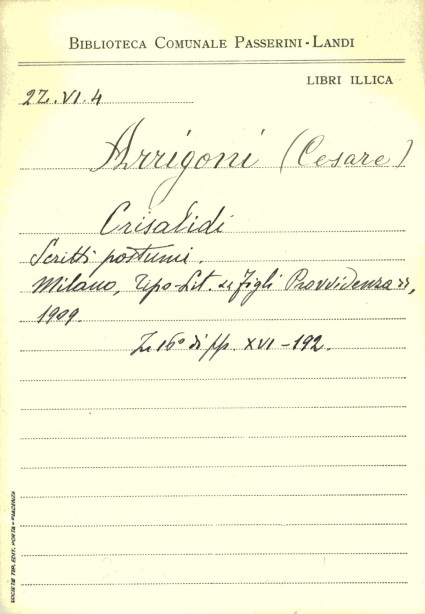 BIBLIOTECA COMUNALE PASSERINI-LANDI
LIBRI ILLICA
2Z.VI.4
Arrigoni (Cesare)
Crisalidi
Scritti postumi.
Milano, Tipo-Lit. Figli Provvidenza,
1909.
In 16° di pp. XVI-192.
SOCIETÀ TIP. EDIT. PORTA - PIACENZA